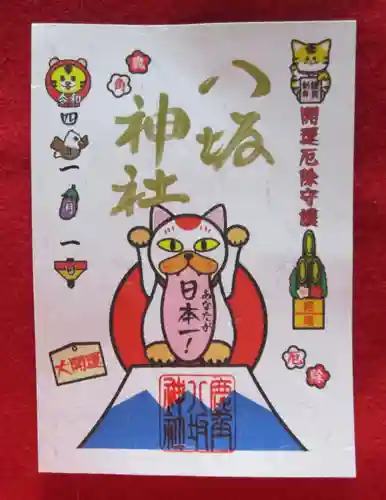 開運厄除守護
八坂
神社
鹿
角
令和
四
一
月
一
日
あなたが
日本一！
大開運
厄
除
鹿角
八坂
神社